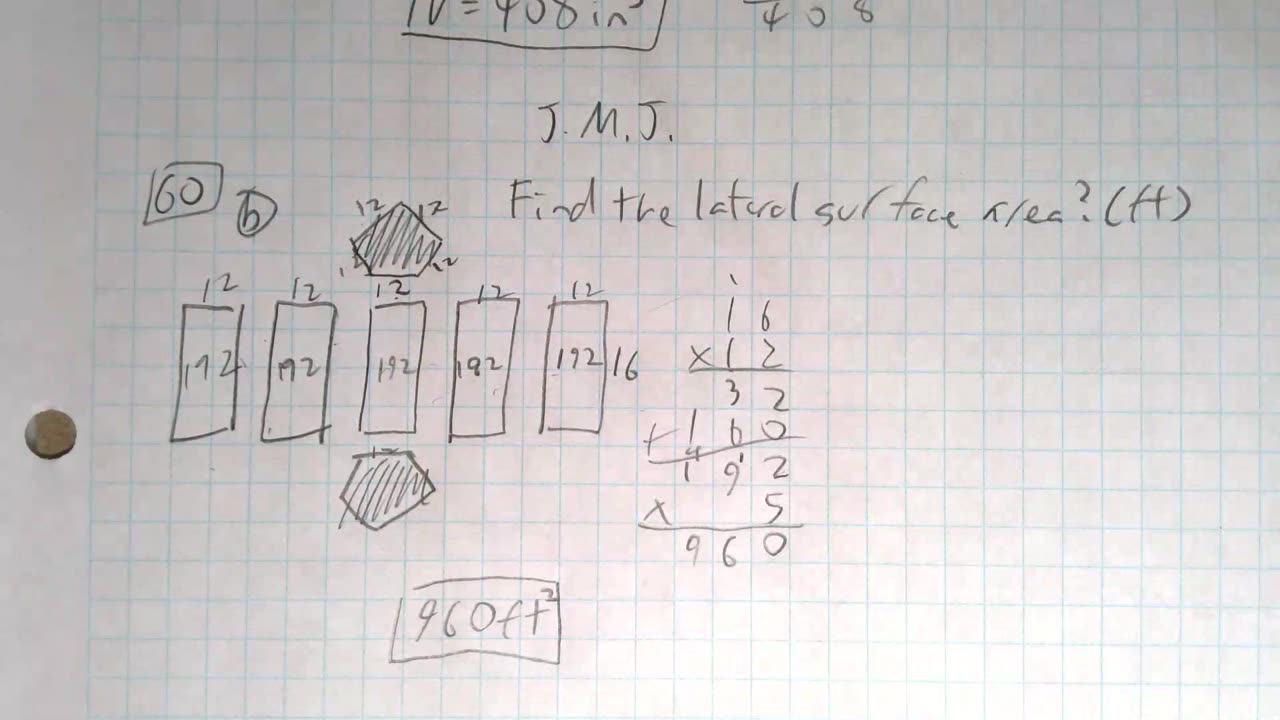 IV = 408 in³
4 0 8
J.M.J.
60 b Find the lateral surface area? (ft)
12 12
12
12 12 12 12 12
192 192 192 192 192 16
12
1
1 6
x 1 2
3 2
+ 1 6 0
4 1
1 9 2
x 5
9 6 0
960ft²